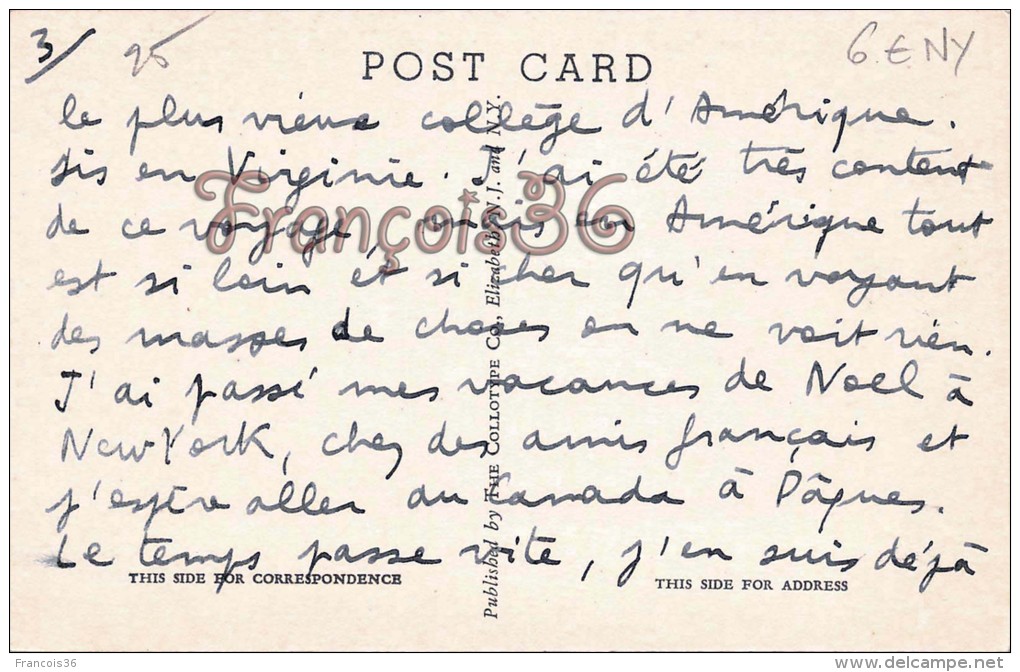 3/ 95 6 € NY
POST CARD
le plus vieux collège d'Amérique.
sis en Virginie. J'ai été très content
de ce voyage, mais en Amérique tout
est si loin et si cher qu'en voyant
des masses de choses on ne voit rien.
J'ai passé mes vacances de Noel à
New York, chez des amis français et
j'espère aller au Canada à Pâques.
Le temps passe vite, j'en suis déjà
THIS SIDE FOR CORRESPONDENCE
THIS SIDE FOR ADDRESS
Published by THE COLLOTYPE CO., Elizabeth, N.J. and N.Y.
François36
Francois36
www.delcampe.net